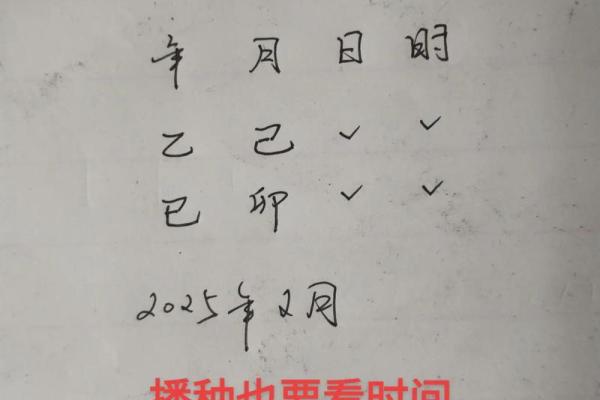 年 月 日 时
乙 己 ✓ ✓
巳 卯 ✓ ✓
2025年2月
播种也要看时间